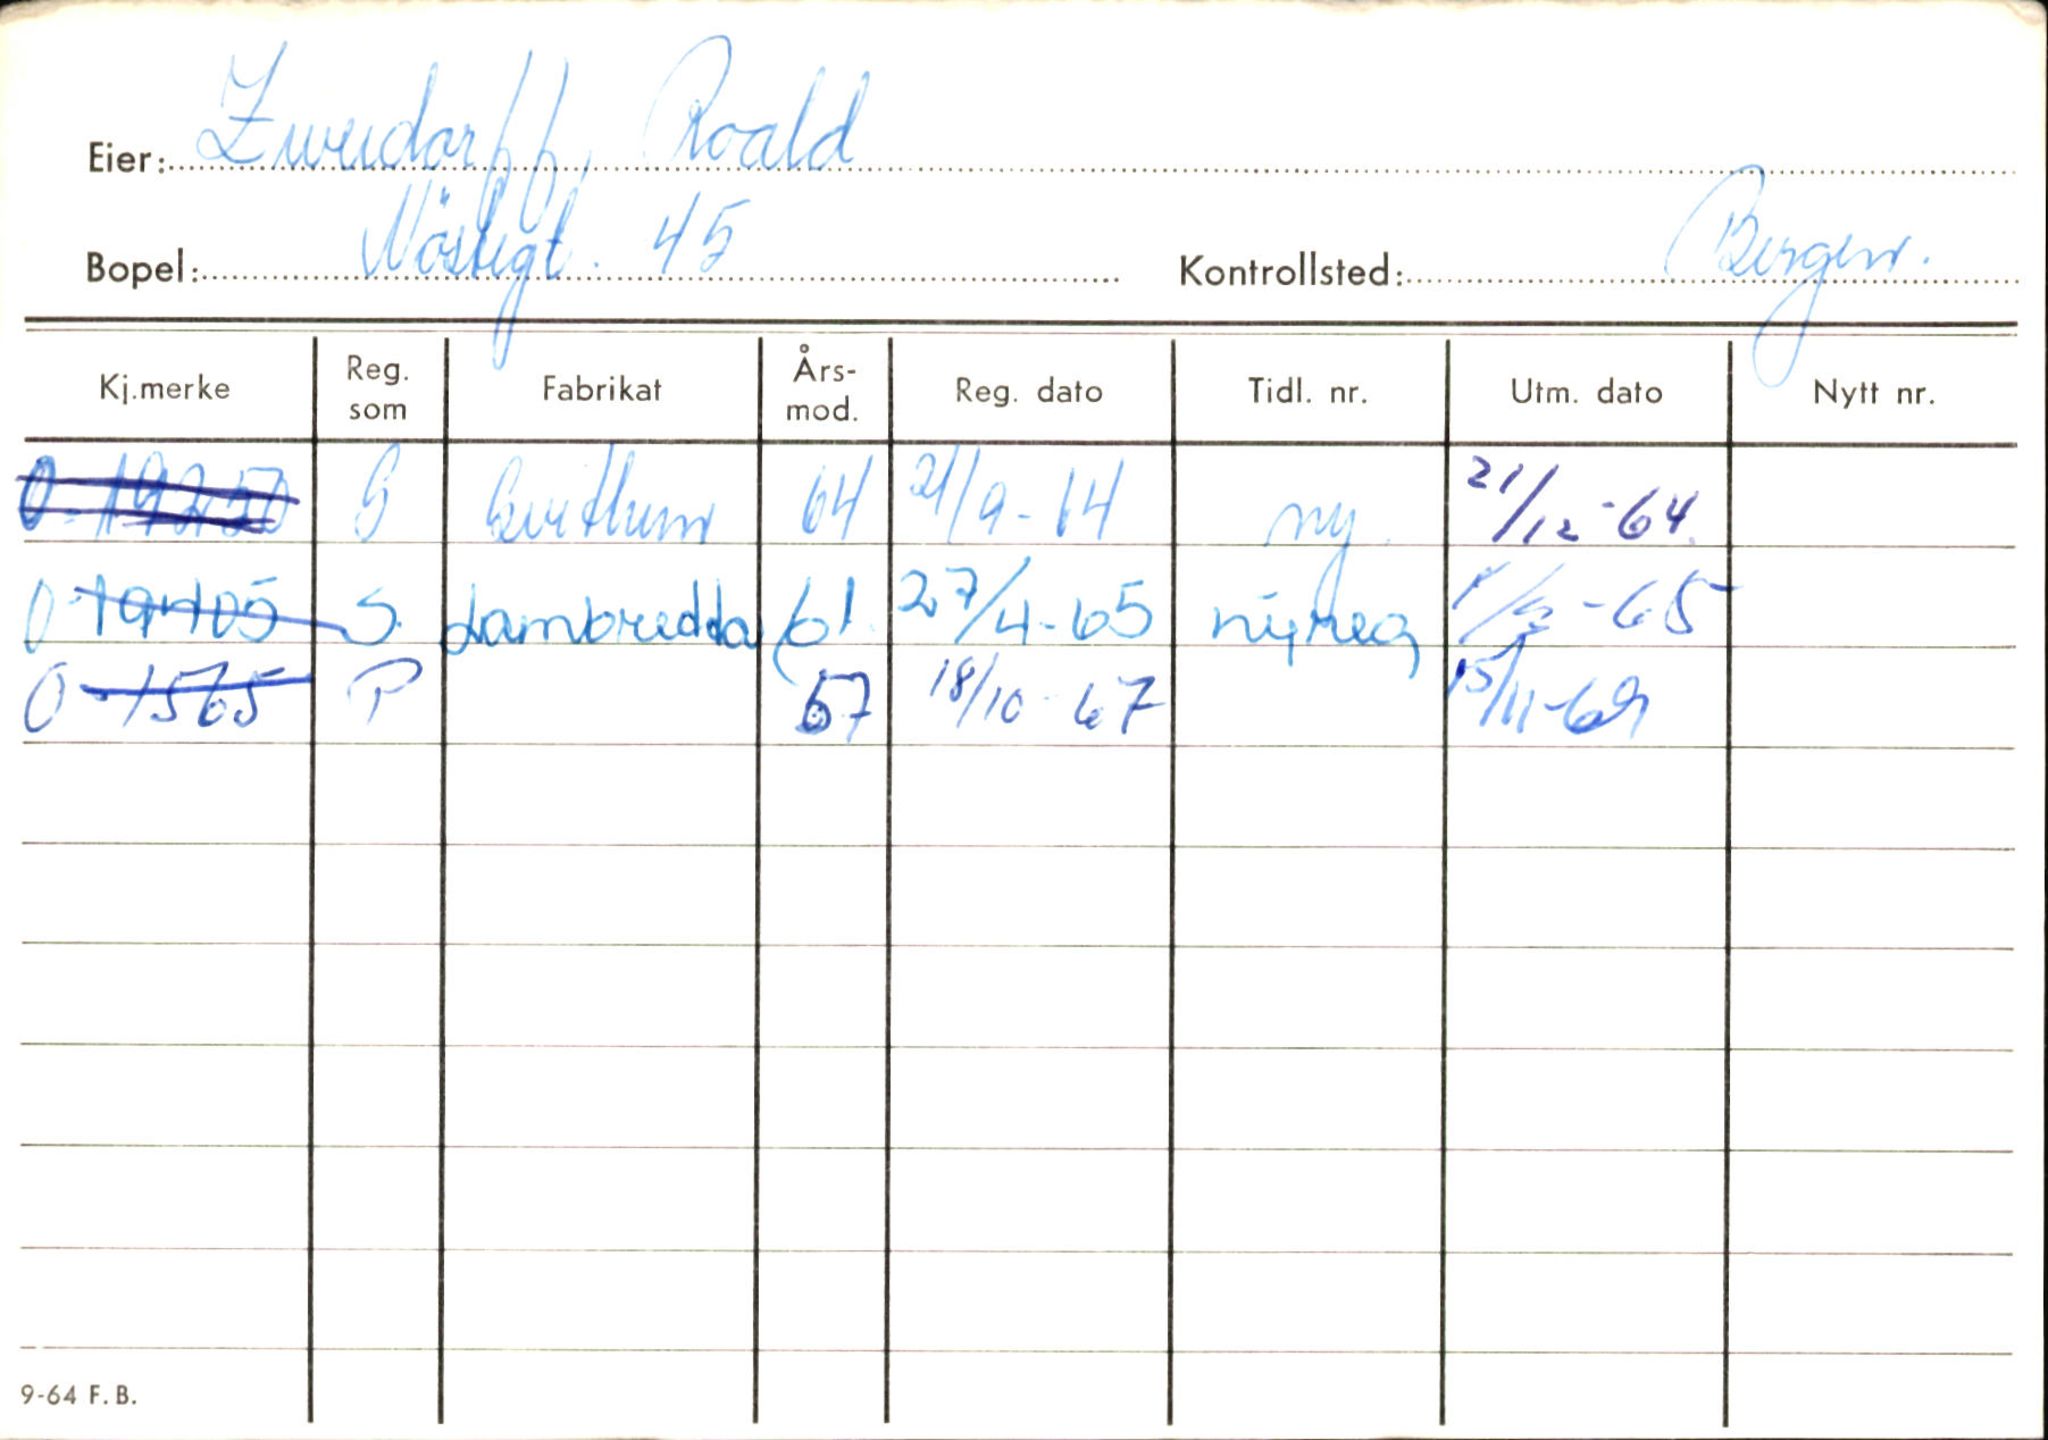 Eier: Zweidorff, Roald
Bopel: Nöstegt. 45 Kontrollsted: Bergen.
Kj.merke Reg. som Fabrikat Års-mod. Reg. dato Tidl. nr. Utm. dato Nytt nr.
O-19250 S 64 21/9-64 ny. 21/12-64.
O-19405 S. Lambredda 61. 27/4-65 nyreg 1/9-65
O-1565 P 67 18/10-67 15/11-69
9-64 F.B.